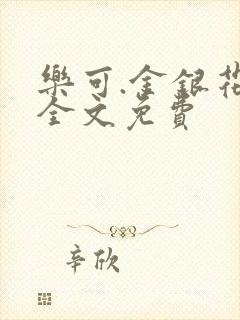 樂可.金銀花
全文免費
辛欣